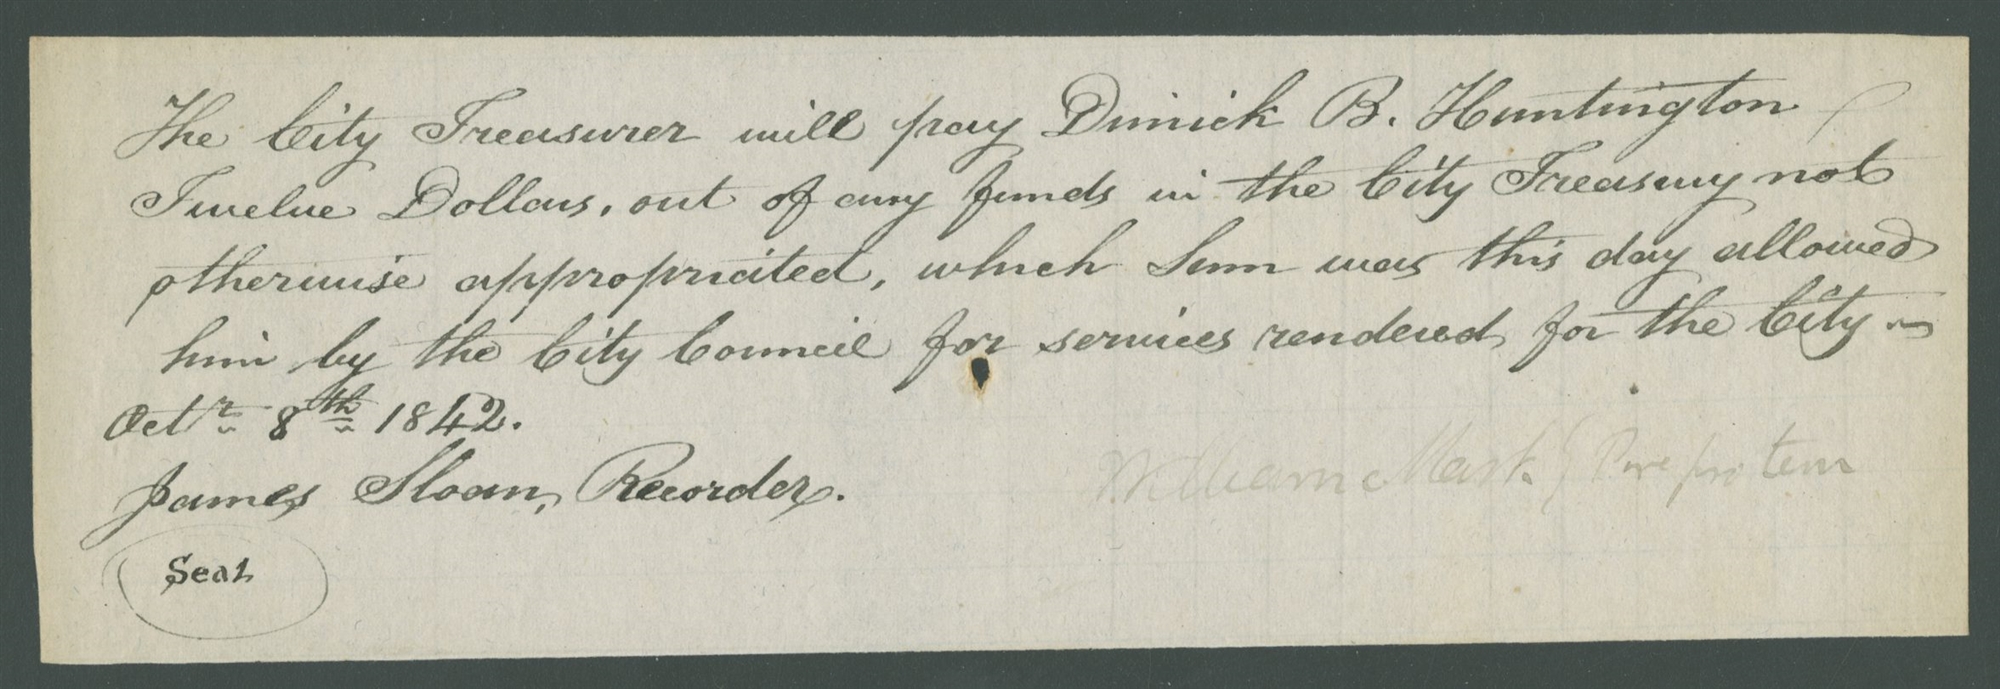 The City Treasurer will pay Dimick B. Huntington
Twelve Dollars, out of any funds in the City Treasury not
otherwise appropriated, which Sum was this day allowed
him by the City Council for services rendered for the City
Octr 8th 1842.
James Sloan, Recorder.
William Mark pro tem
Seal